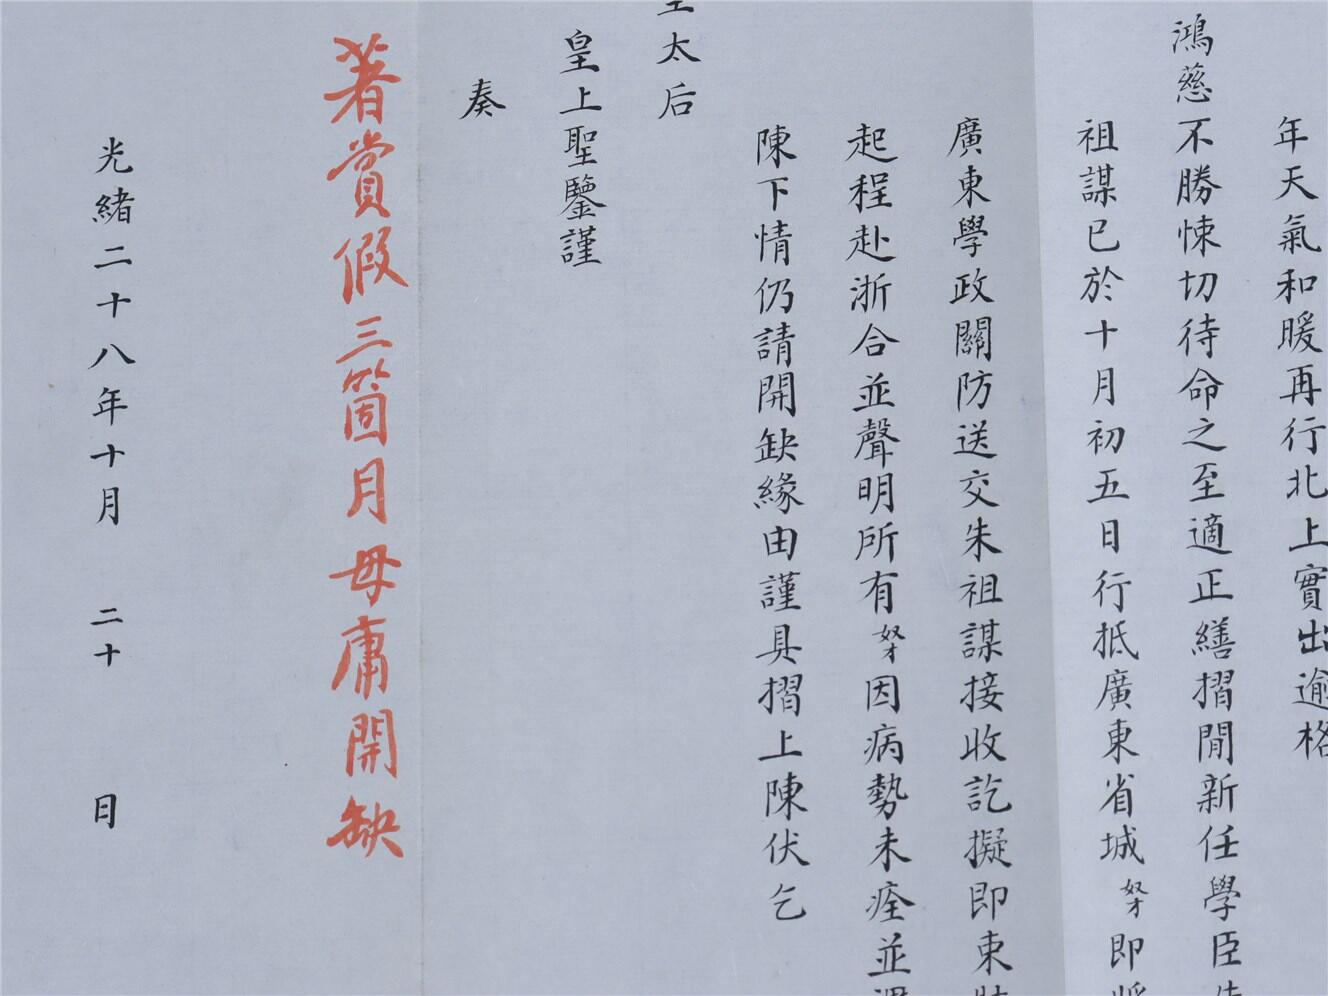 年天氣和暖再行北上實出逾格
鴻慈不勝悚切待命之至適正繕摺間新任學臣
祖謀已於十月初五日行抵廣東省城奴才即將
廣東學政關防送交朱祖謀接收訖擬即束裝
起程赴浙合並聲明所有奴才因病勢未痊並
陳下情仍請開缺緣由謹具摺上陳伏乞
太后
皇上聖鑒謹
奏
著賞假三箇月毋庸開缺
光緒二十八年十月二十日